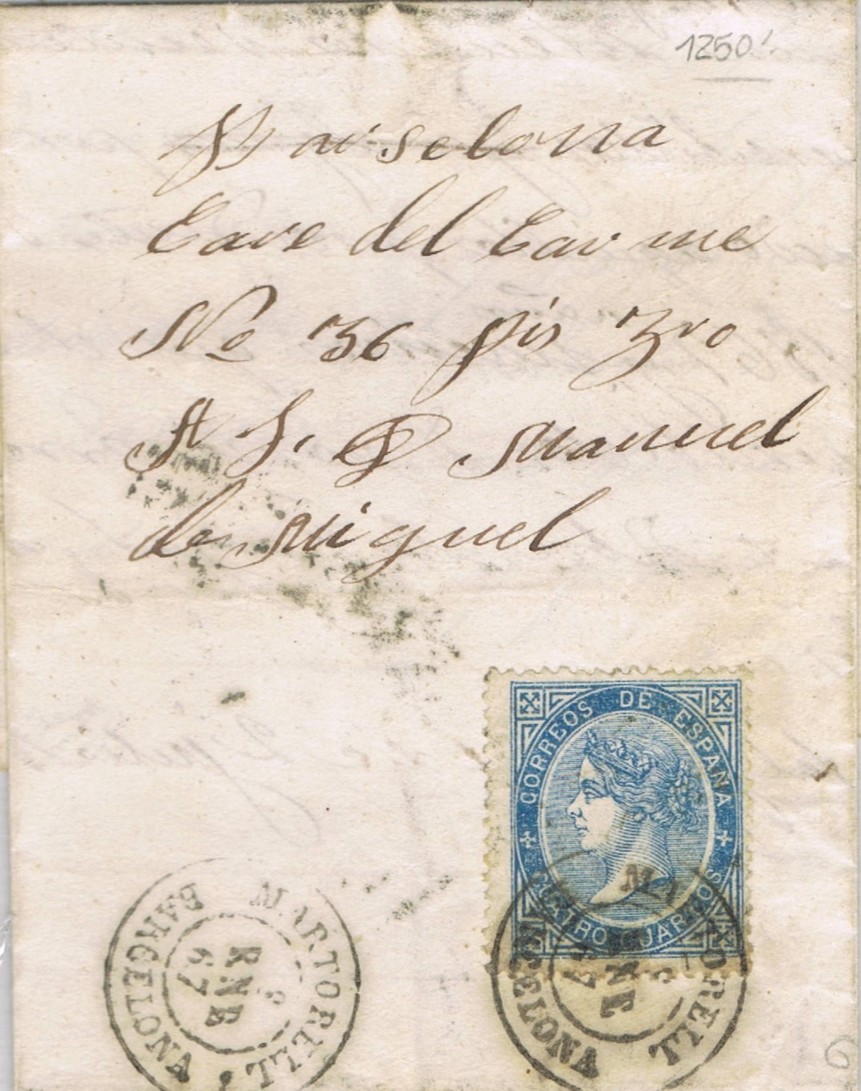 1250
Barselona
Care del Carme
No 36 pis 3ro
A S. D Manuel
de Miguel
CORREOS DE ESPAÑA
CUATRO CUARTOS
MARTORELL
BARCELONA
8
ENE
67
MARTORELL
BARCELONA
8
ENE
67
6